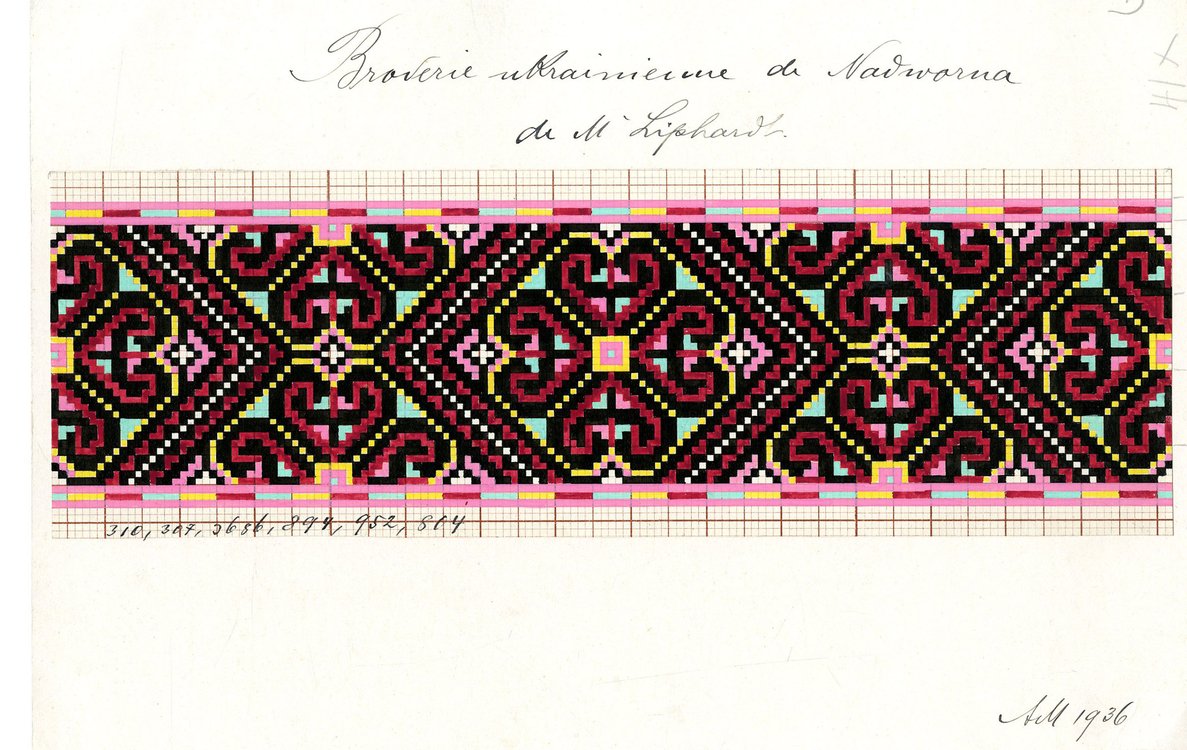 Broderie ukrainienne de Nadworna
de Mr Liphardt.
310, 307, 3686, 894, 952, 804
AM 1936